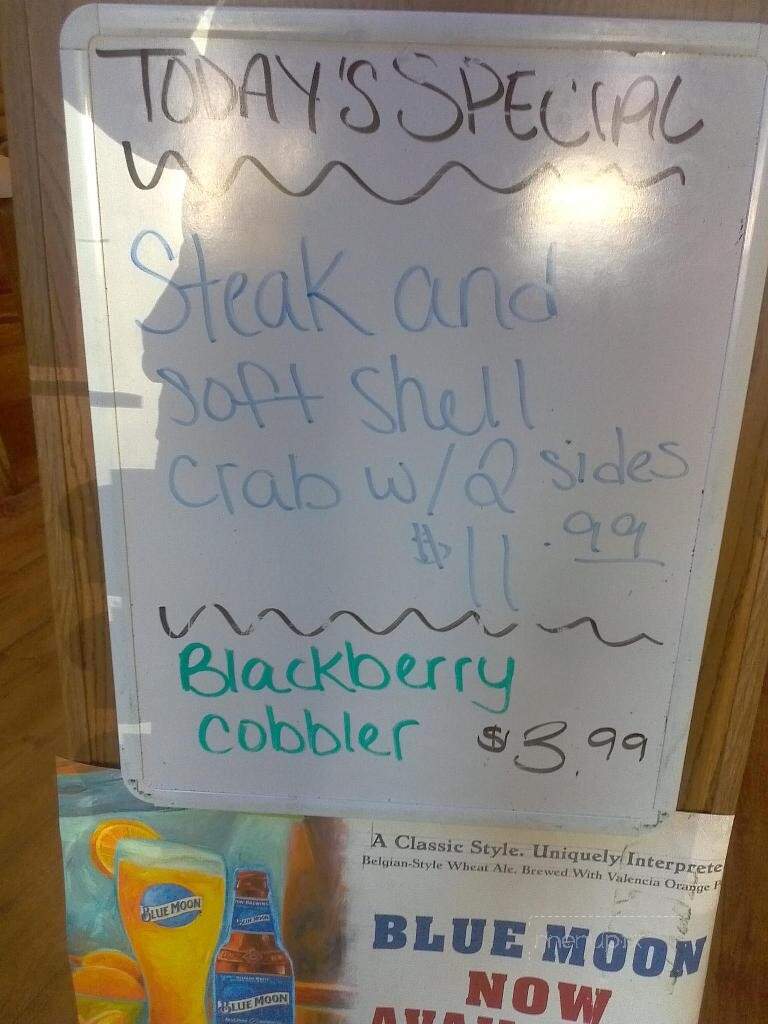 TODAY'S SPECIAL
Steak and
soft shell
crab w/2 sides
$11.99
Blackberry
cobbler $3.99
A Classic Style. Uniquely Interprete
Belgian-Style Wheat Ale. Brewed With Valencia Orange P
BLUE MOON
BLUE MOON
BLUE MOON
BLUE MOON
NOW